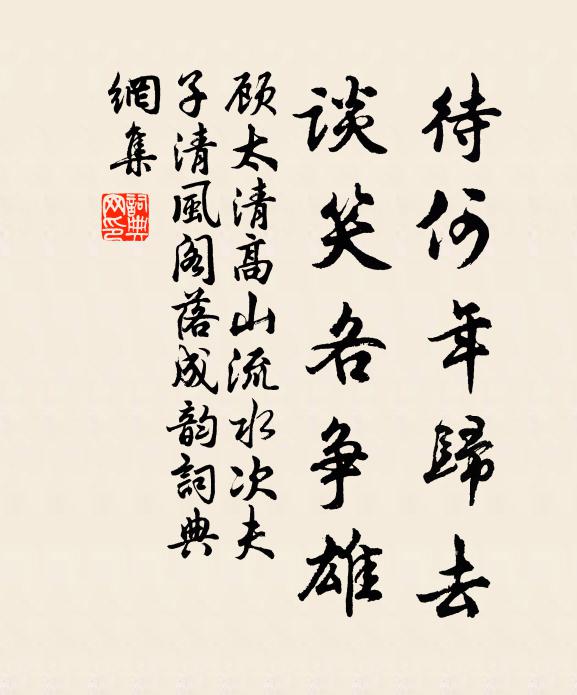 待何年歸去
談笑各争雄
顾太清高山流水次夫
子清風阁落成韵詞典
網集
詞典网印